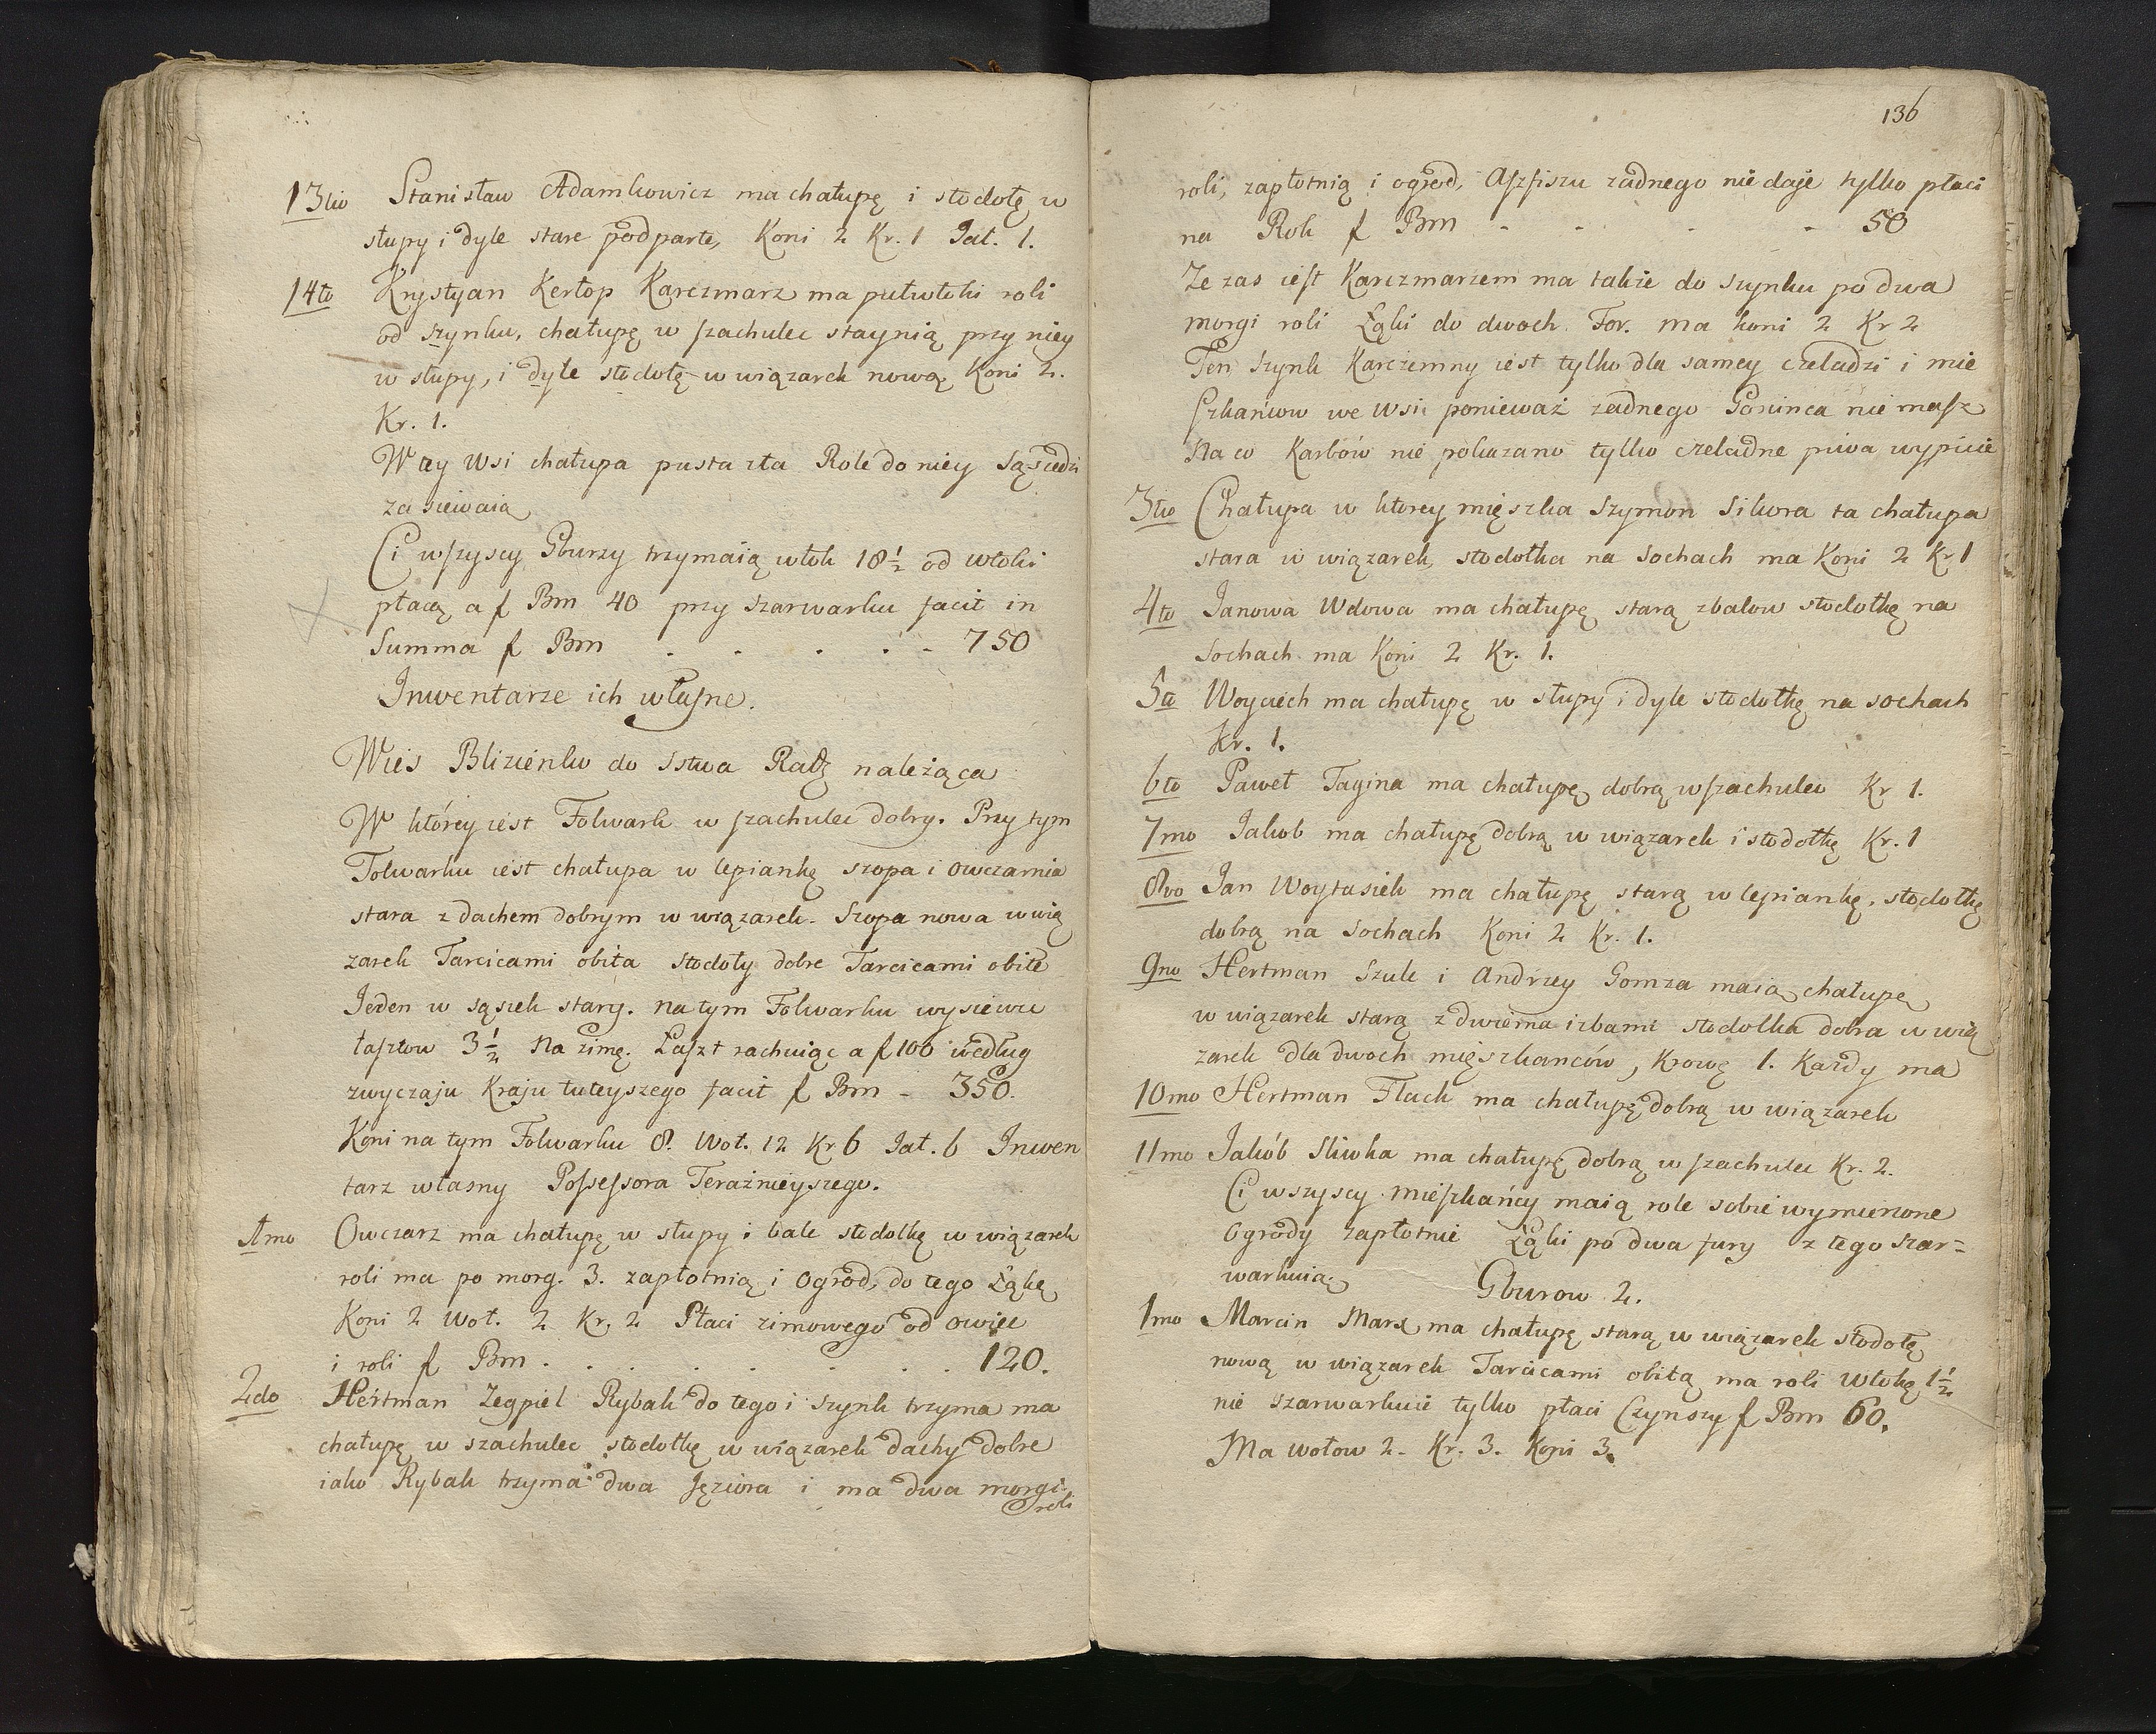 13tio Stanisław Adamkowicz ma chałupę i stodołę w
słupy i dyle stare podparte, Koni 2 Kr. 1 Jał. 1.
14to Krystyan Kertop Karczmarz ma pułwłoki roli
od szynku, chałupę w szachulec staynią przy niey
w słupy, i dyle stodołę w wiązarek nową Koni 2.
Kr. 1.
W tey Wsi chałupa pusta zła Role do niey Sąsiedzi
zasiewaią
Ci wszyscy Gburzy trzymaią włók 18 1/2 od włoki
płacą a f Bm 40 przy szarwarku facit in
Summa f Bm . . . . . - 750
Inwentarze ich własne.
Wies Blizienko do Sstwa Radz należąca
W którey iest Folwark w szachulec dobry. Przy tym
Folwarku iest chałupa w lepiankę szopa i owczarnia
stara z dachem dobrym w wiązarek. Szopa nowa w wią
zarek Tarcicami obita stodoły dobre Tarcicami obite
Jeden w sąsiek stary. na tym Folwarku wysiewu
łasztow 3 1/2 Na zimę. Łaszt rachuiąc a f 100 według
zwyczaju Kraju tuteyszego facit f Bm - 350.
Koni na tym Folwarku 8. Woł. 12 Kr 6 Jał. 6 Inwen
tarz własny Possessora Teraźnieyszego.
1mo Owczarz ma chałupę w słupy i bale stodolkę w wiązarek
roli ma po morg. 3. zapłotnią i ogrod, do tego Łąkę
Koni 2 Woł. 2 Kr. 2 Płaci zimowego od owiec
i roli f Bm . . . . . . . . 120.
2do Hertman Zegpiel Rybak do tego i szynk trzyma ma
chałupę w szachulec stodołkę w wiązarek dachy dobre
iako Rybak trzyma dwa Jęziora i ma dwa morgi
roli
136
roli, zapłotnią i ogrod, Aszfiszu zadnego nie daje tylko płaci
na Rok f Bm - - - - 50
Ze zas iest Karczmarzem ma także do szynku po dwa
morgi roli Łąki do dwoch For. ma koni 2 Kr 2
Ten szynk Karczemny iest tylko dla samey czeladzi i mie
szkańcow we wsi ponieważ zadnego Goscinca nie masz
Na co Karbów nie pokazano tylko czeladne piwa wypicie
3tio Chałupa w ktorey mięszka Szymon Sikora ta chałupa
stara w wiązarek, stodołka na sochach ma Koni 2 Kr 1
4to Janowa Wdowa ma chałupę starą zbalow stodołkę na
sochach ma Koni 2 Kr. 1.
5to Woyciech ma chałupę w słupy i dyle stodołkę na sochach
Kr. 1.
6to Paweł Tagina ma chałupę dobrą w szachulec Kr 1.
7mo Jakob ma chałupę dobrą w wiązarek i stodołkę Kr. 1
8vo Jan Woytasiek ma chałupę starą w lepiankę, stodołkę
dobrą na Sochach Koni 2 Kr. 1.
9no Hertman Szulc i Andrzey Gomza maią chałupę
w wiązarek starą z dwiema izbami stodolka dobra w wią
zarek dla dwoch mięszkanców, Krowę 1. Każdy ma
10mo Hertman Flach ma chałupę dobrą w wiązarek
11mo Jakób Sliwka ma chałupę dobrą w szachulec Kr. 2.
Ci wszyscy mieszkańcy maią role sobie wymierzone
Ogrody zapłotnie Łąki po dwa fury z tego szar=
warkuią.
Gburow 2.
1mo Marcin Marx ma chałupę starą w wiązarek stodołę
nową w wiązarek Tarcicami obitą ma roli Włokę 1 1/2
nie szarwarkuie tylko płaci Czynszy f Bm 60.
Ma wołow 2. Kr. 3. Koni 3.